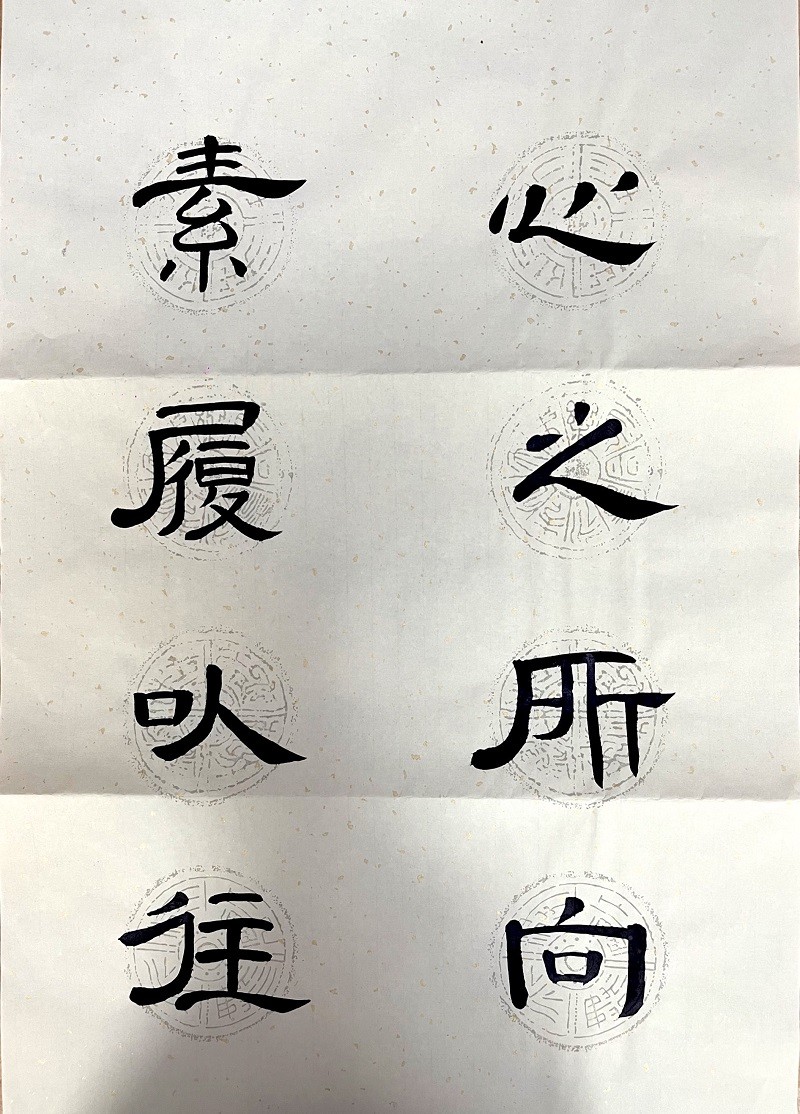 心之所向
素履㕥往